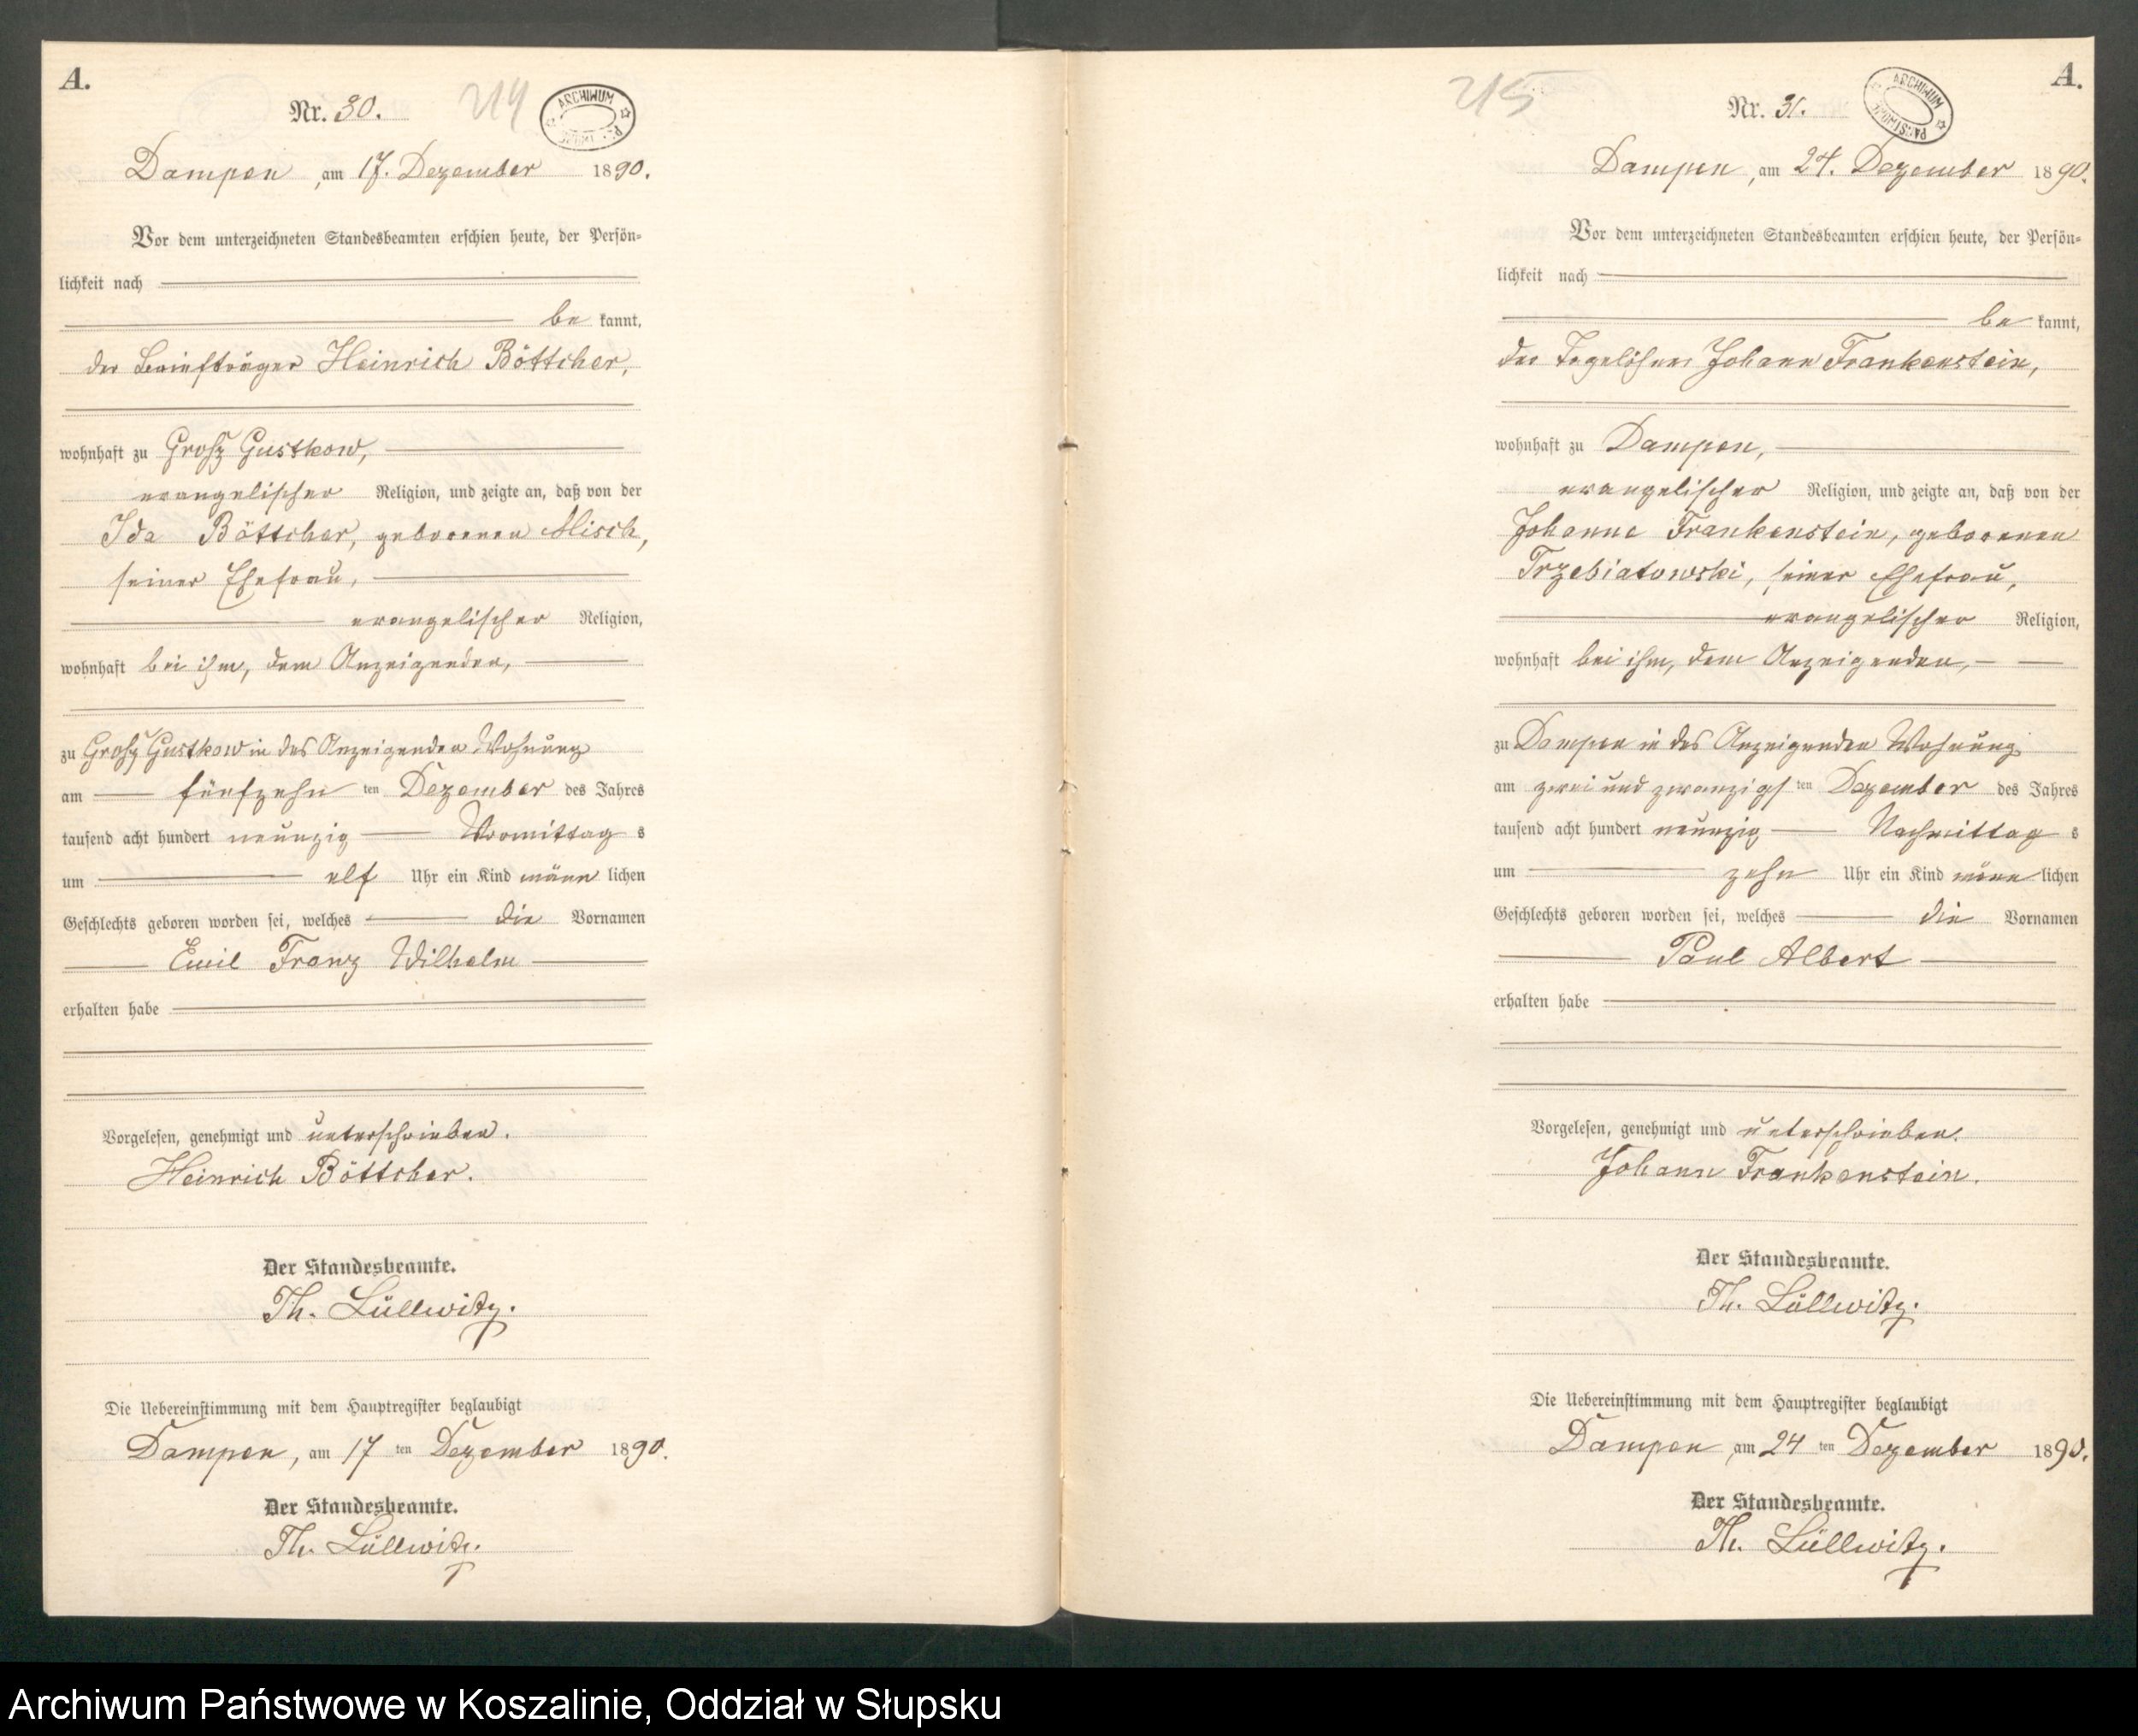 A.
Nr. 30.
214
ARCHIWUM
Dampen, am 17. Dezember 1890.
Vor dem unterzeichneten Standesbeamten erschien heute, der Persön-
lichkeit nach
be kannt,
der Briefträger Heinrich Böttcher,
wohnhaft zu Groß Gustkow,
evangelischer Religion, und zeigte an, daß von der
Ida Böttcher, geborenen Misch,
seiner Ehefrau,
evangelischer Religion,
wohnhaft bei ihm, dem Anzeigenden,
zu Groß Gustkow in des Anzeigenden Wohnung
am fünfzehn ten Dezember des Jahres
tausend acht hundert neunzig Vormittag s
um elf Uhr ein Kind männ lichen
Geschlechts geboren worden sei, welches die Vornamen
Emil Franz Wilhelm
erhalten habe
Vorgelesen, genehmigt und unterschrieben.
Heinrich Böttcher.
Der Standesbeamte.
Th. Lüllwitz.
Die Uebereinstimmung mit dem Hauptregister beglaubigt
Dampen, am 17 ten Dezember 1890.
Der Standesbeamte.
Th. Lüllwitz.
A.
Nr. 31.
215
ARCHIWUM PAŃSTWOWE
Dampen, am 24. Dezember 1890.
Vor dem unterzeichneten Standesbeamten erschien heute, der Persön-
lichkeit nach
be kannt,
der Tagelöhner Johann Frankenstein,
wohnhaft zu Dampen,
evangelischer Religion, und zeigte an, daß von der
Johanne Frankenstein, geborenen
Trzebiatowski, seiner Ehefrau,
evangelischer Religion,
wohnhaft bei ihm, dem Anzeigenden,
zu Dampen in des Anzeigenden Wohnung
am zwei und zwanzigs ten Dezember des Jahres
tausend acht hundert neunzig Nachmittag s
um zehn Uhr ein Kind männ lichen
Geschlechts geboren worden sei, welches die Vornamen
Paul Albert
erhalten habe
Vorgelesen, genehmigt und unterschrieben.
Johann Frankenstein.
Der Standesbeamte.
Th. Lüllwitz.
Die Uebereinstimmung mit dem Hauptregister beglaubigt
Dampen, am 24 ten Dezember 1890.
Der Standesbeamte.
Th. Lüllwitz.
Archiwum Państwowe w Koszalinie, Oddział w Słupsku